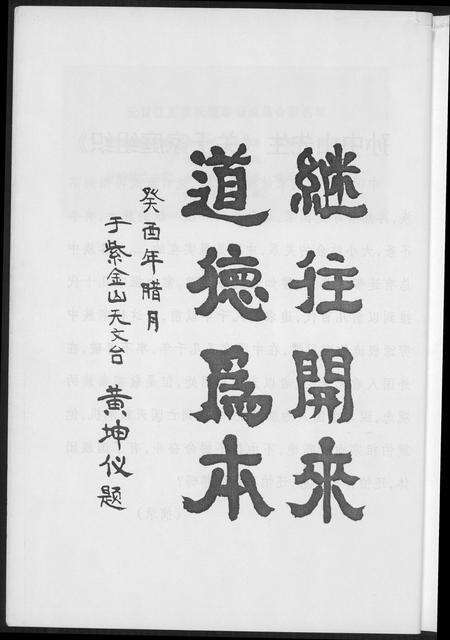 继往開來
道德爲本
癸酉年腊月
于紫金山天文台 黄坤仪题